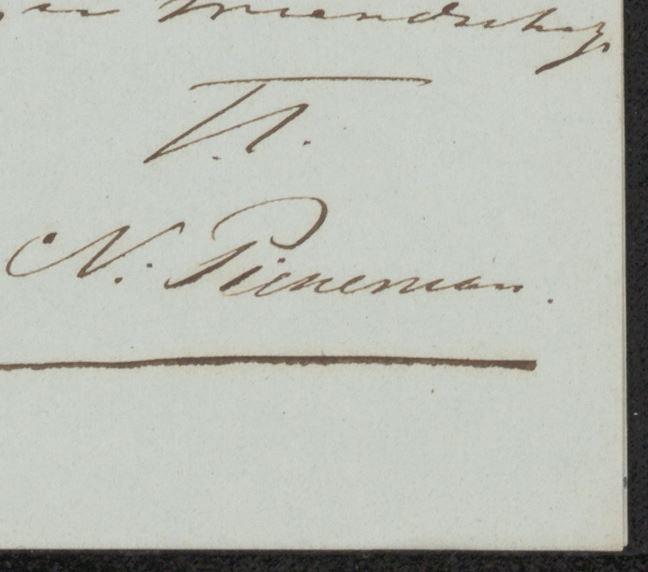 vriendschap
T.T.
N. Pieneman.